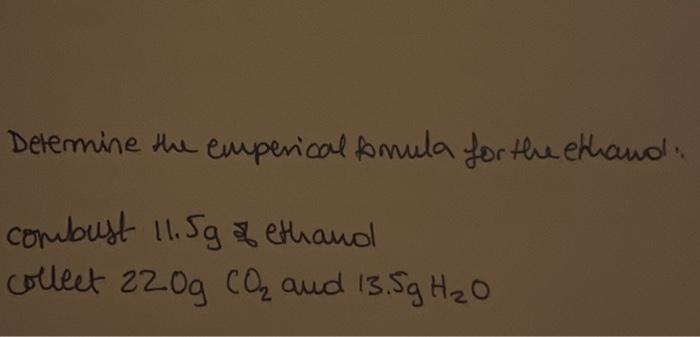 Determine the emperical formula for the ethanol:
combust 11.5g ethanol
collect 22.0g CO₂ and 13.5g H₂O